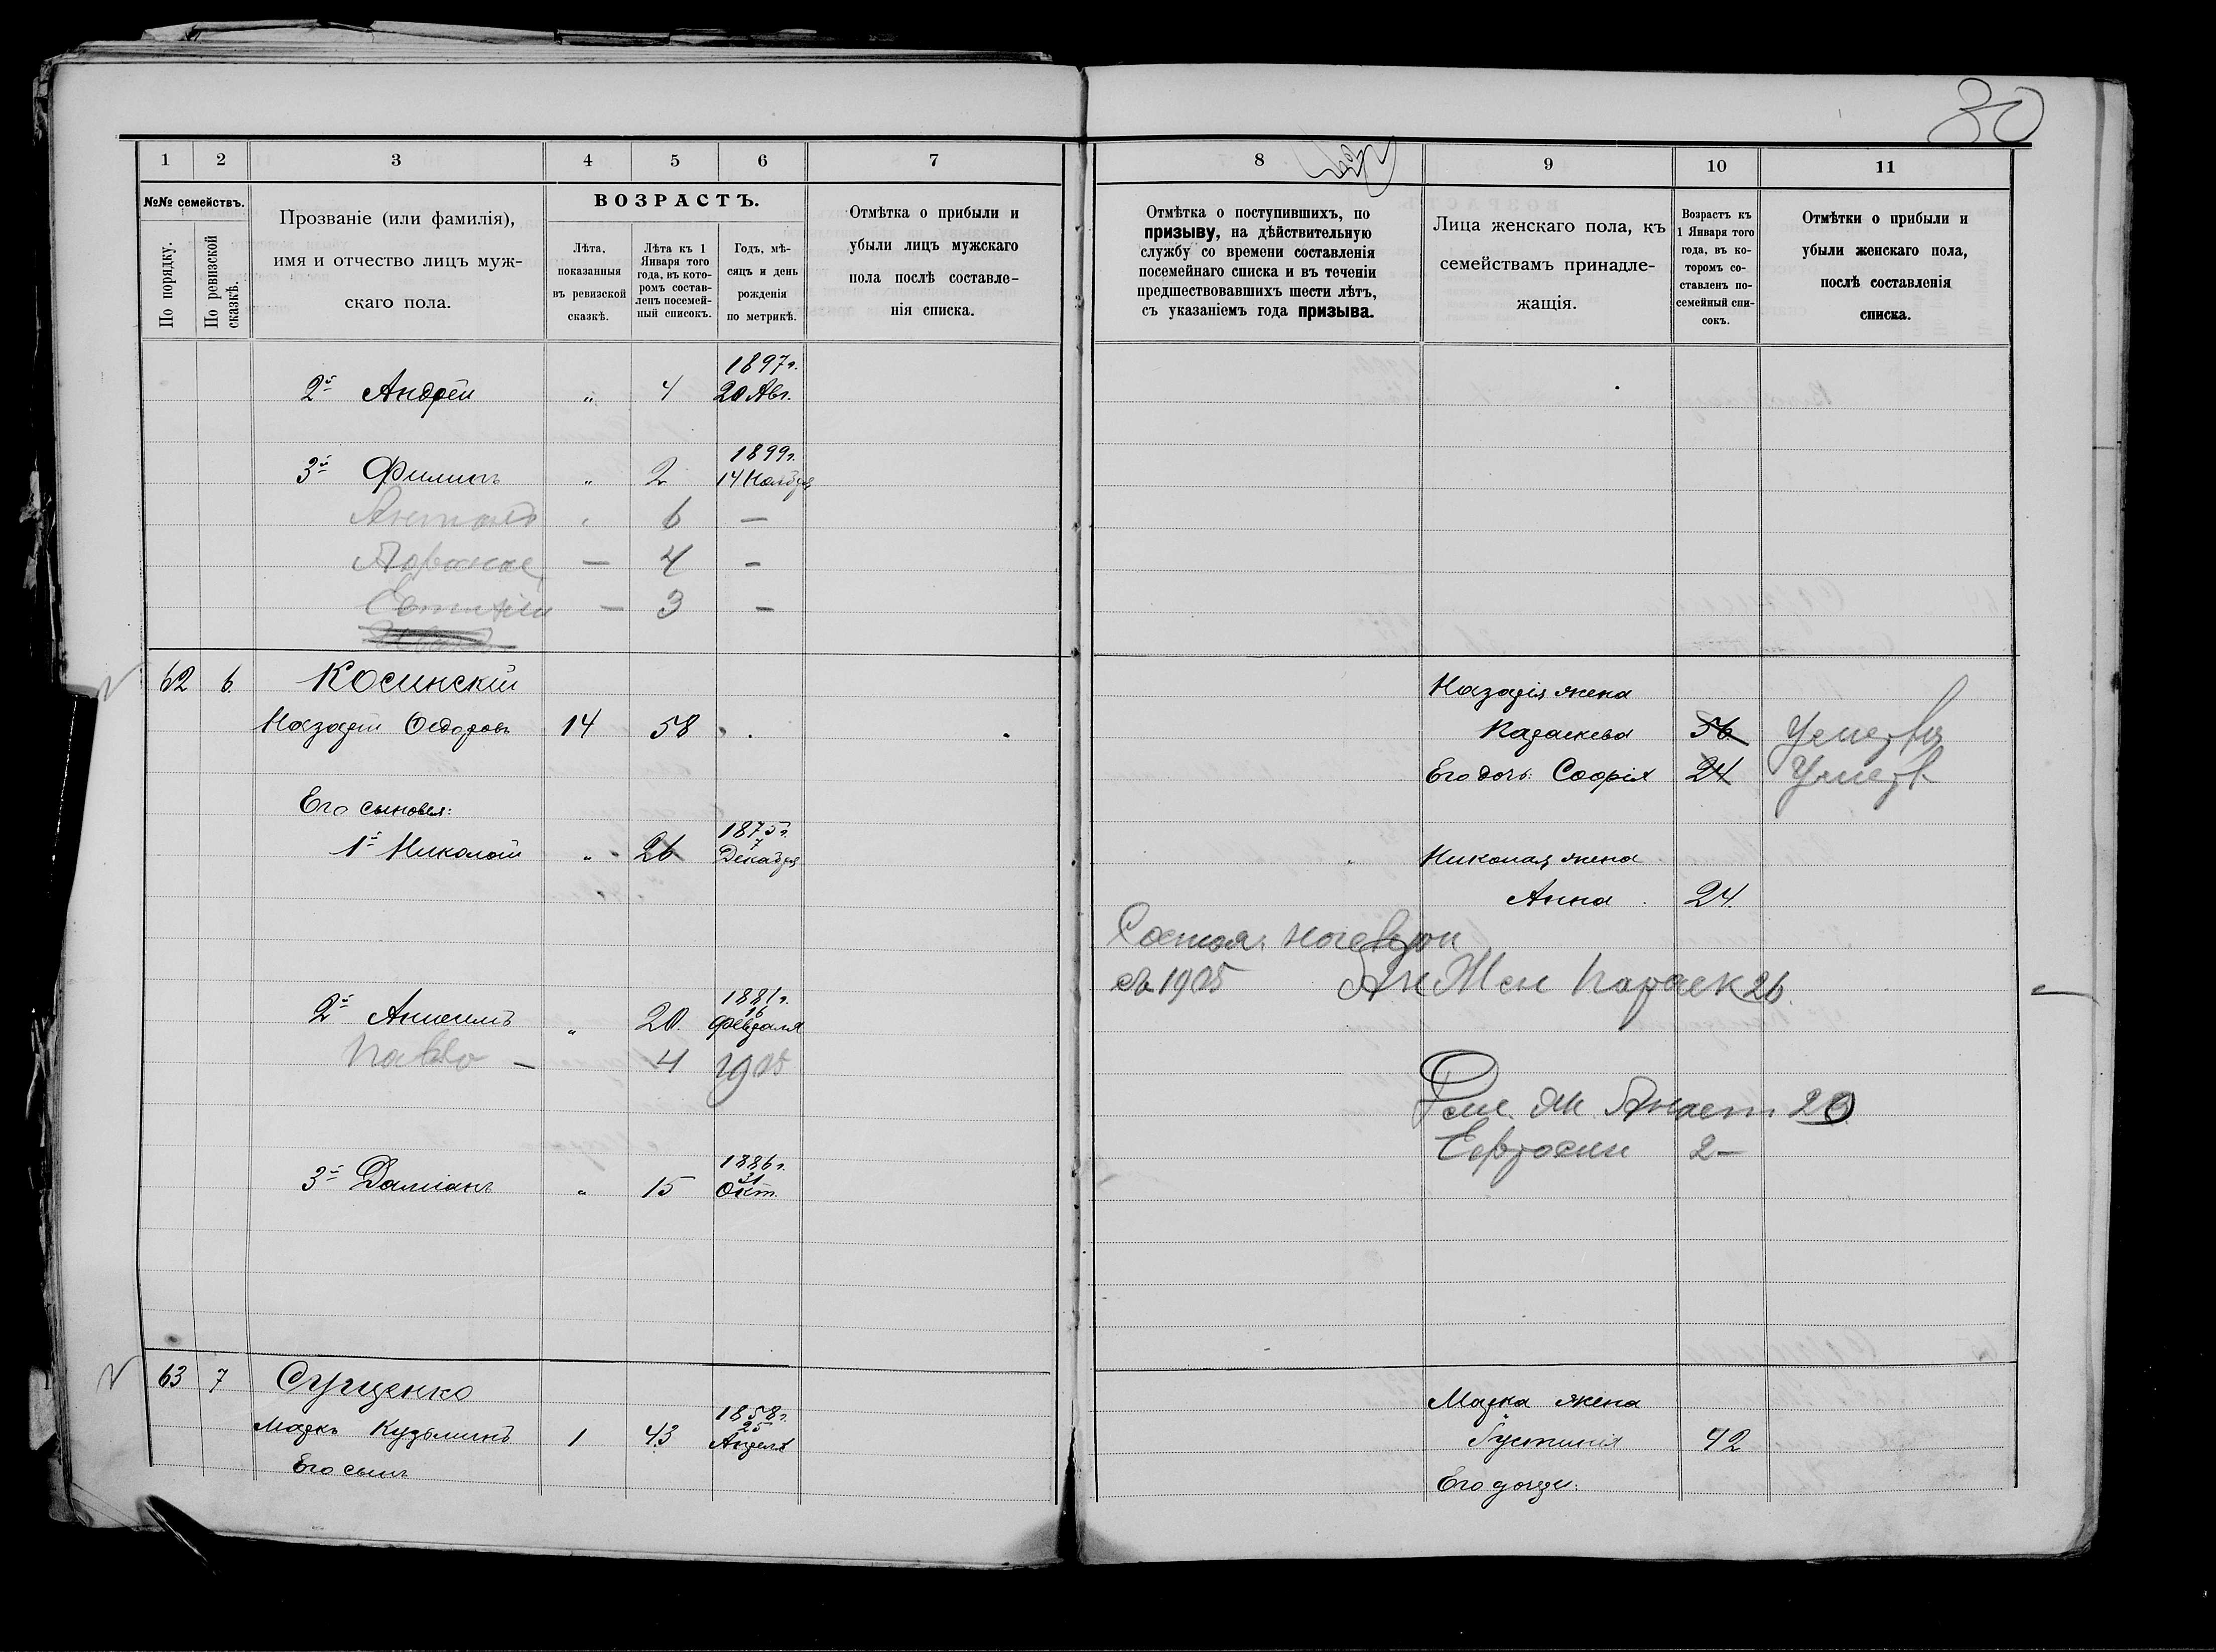 30
1 2 3 4 5 6 7
№№ семействъ.
По порядку.
По ревизской сказкѣ.
Прозваніе (или фамилія),
имя и отчество лицъ муж-
скаго пола.
ВОЗРАСТЪ.
Лѣта,
показанныя
въ ревизской
сказкѣ.
Лѣта къ 1
Января того
года, въ кото-
ромъ состав-
ленъ посемей-
ный список.
Годъ, мѣ-
сяцъ и день
рожденія
по метрикѣ.
Отмѣтка о прибыли и
убыли лицъ мужскаго
пола послѣ составле-
нія списка.
1897 г.
2й Андрей " 4 20 Авг.
1899 г.
3й Филипъ " 2 14 Ноября
6 —
— 4 —
— 3 —
62 6 Косинскій
Назарій Ѳедоровъ 14 58
Его сыновья:
1875 г.
7
1й Николай " 26 Декабря
1881 г.
16
2й Анисимъ " 20. Февраля
Павло — 4 1905
1886 г.
31
3й Даміанъ " 15 Окт.
63 7 Сущенко
1858 г.
25
Маркъ Кузьминъ 1 43 Апреля
Его сынъ
8 9 10 11
Отмѣтка о поступившихъ, по
призыву, на дѣйствительную
службу со времени составленія
посемейнаго списка и въ теченіи
предшествовавшихъ шести лѣтъ,
съ указаніемъ года призыва.
Лица женскаго пола, къ
семействамъ принадле-
жащія.
Возрастъ къ
1 Января того
года, въ ко-
торомъ со-
ставленъ по-
семейный спи-
сокъ.
Отмѣтки о прибыли и
убыли женскаго пола,
послѣ составленія
списка.
Назарія жена
Параскева 56
Его дочь: Софія 24
Николая жена
Анна 24
съ 1905 Ан Жен Параск 26
Анаст 20
Евфросин 2 —
Марка жена
Іустинія 42
Его дочери: